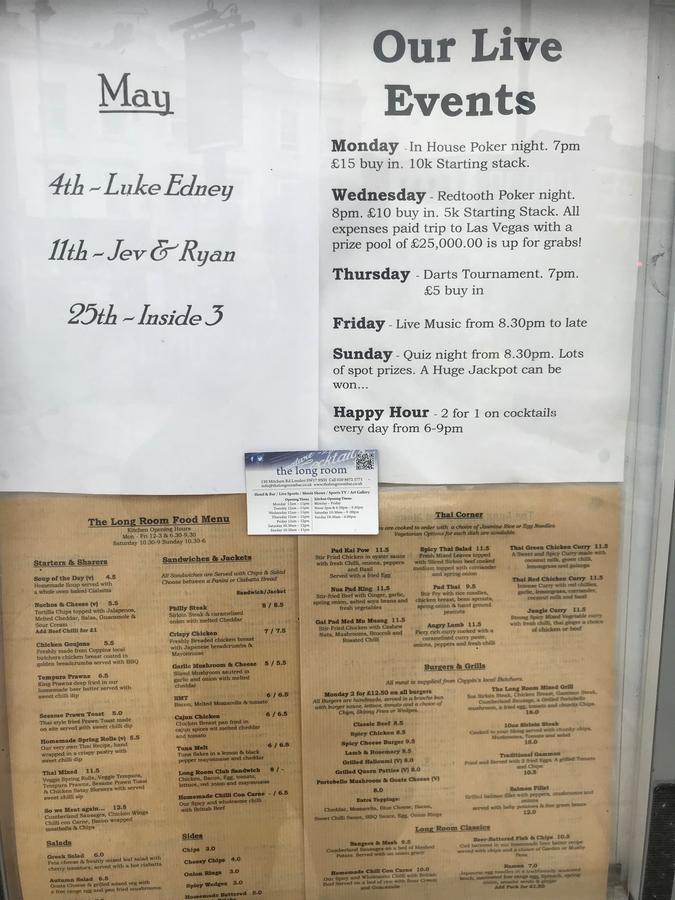 May
4th ~ Luke Edney
11th ~ Jev & Ryan
25th ~ Inside 3
Our Live
Events
Monday - In House Poker night. 7pm
£15 buy in. 10k Starting stack.
Wednesday - Redtooth Poker night.
8pm. £10 buy in. 5k Starting Stack. All
expenses paid trip to Las Vegas with a
prize pool of £25,000.00 is up for grabs!
Thursday - Darts Tournament. 7pm.
£5 buy in
Friday - Live Music from 8.30pm to late
Sunday - Quiz night from 8.30pm. Lots
of spot prizes. A Huge Jackpot can be
won...
Happy Hour - 2 for 1 on cocktails
every day from 6-9pm
the long room
Hotel & Bar / Live Sports / Music Shows / Sports TV / Art Gallery
Opening Times
Kitchen Opening Times
The Long Room Food Menu
Kitchen Opening Hours
Mon - Fri 12-3 & 6.30-9.30
Saturday 10.30-9 Sunday 10.30-6
Starters & Sharers
Soup of the Day (v) 4.5
Homemade Soup served with
a whole oven baked Ciabatta
Nachos & Cheese (v) 5.5
Tortilla Chips topped with Jalapenos,
Melted Cheddar, Salsa, Guacamole &
Sour Cream
Add Beef Chilli for £1
Chicken Goujons 5.5
Freshly made from Coppins local
butchers chicken breast coated in
golden breadcrumbs served with BBQ
Tempura Prawns 6.5
King Prawns deep fried in our
homemade beer batter served with
sweet chilli dip
Sesame Prawn Toast 5.0
Thai style fried Prawn Toast made
on site served with sweet chilli dip
Homemade Spring Rolls (v) 5.5
Our very own Thai Recipe, hand
wrapped in a crispy pastry with
sweet chilli dip
Thai Mixed 11.5
Veggie Spring Rolls, Veggie Tempura,
Tempura Prawns, Sesame Prawn Toast
& Chicken Satay Skewers with served
sweet chilli dip
So we Meat again... 12.5
Cumberland Sausages, Chicken Wings
Chilli con Carne, Bacon wrapped
meatballs & Chips
Salads
Greek Salad 6.0
Feta cheese & freshly mixed leaf salad with
cherry tomatoes, served with a hot ciabatta
Autumn Salad 6.5
Goats Cheese & grilled mixed veg with
a free range egg and pan fried mushrooms
Sandwiches & Jackets
All Sandwiches are Served with Chips & Salad
Choose between a Panini or Ciabatta Bread
Sandwich/Jacket
Philly Steak 8 / 8.5
Sirloin Steak & caramelised
onion with melted Cheddar
Crispy Chicken 7 / 7.5
Freshly Breaded chicken breast
with Japanese breadcrumbs &
Mayonnaise
Garlic Mushroom & Cheese 5 / 5.5
Sliced Mushroom sauteed in
garlic and onion with melted
cheddar
BMT 6 / 6.5
Bacon, Melted Mozzarella & tomato
Cajun Chicken 6 / 6.5
Chicken Breast pan fried in
cajun spices wit melted cheddar
and tomato
Tuna Melt 6 / 6.5
Tuna flakes in a lemon & black
pepper mayonnaise and cheddar
Long Room Club Sandwich 8 / -
Chicken, Bacon, Egg, tomato,
lettuce, red onion and mayonnaise
Homemade Chilli Con Carne - / 6.5
Our Spicy and wholesome chilli
with British Beef
Sides
Chips 3.0
Cheesy Chips 4.0
Onion Rings 3.0
Spicy Wedges 3.0
Homemade Buttered 5.0
Thai Corner
are cooked to order with a choice of Jasmine Rice or Egg Noodles
Vegetarian Options for each dish are available.
Pad Kai Pow 11.5
Stir Fried Chicken in oyster sauce
with fresh Chilli, onions, peppers
and Basil
Served with a fried Egg
Nua Pad King 11.5
Stir-fried Beef with Ginger, garlic,
spring onion, salted soya beans and
fresh vegetables
Gai Pad Med Ma Muang 11.5
Stir-Fried Chicken with Cashew
Nuts, Mushrooms, Broccoli and
Roasted Chilli
Spicy Thai Salad 11.5
Fresh Mixed Leaves topped
with Sliced Sirloin beef cooked
medium topped with corriander
and spring onion
Pad Thai 9.5
Stir Fry with rice noodles,
chicken breast, bean sprouts,
spring onion & hand ground
peanuts
Angry Lamb 11.5
Fiery rich curry cooked with a
caramelised curry paste,
onions, peppers and fresh chilli
Thai Green Chicken Curry 11.5
A Sweet and Spicy Curry made with
coconut milk, green chilli,
lemongrass and galanga
Thai Red Chicken Curry 11.5
Intense Curry with red chillies,
garlic, lemongrass, corriander,
coconut milk and basil
Jungle Curry 11.5
Strong Spicy Mixed Vegetable curry
with fresh chilli, thai ginger a choice
of chicken or beef
Burgers & Grills
All meat is supplied from Coppin's local Butchers.
Monday 2 for £12.50 on all burgers
All Burgers are handmade, served in a brioche bun
with burger sauce, lettuce, tomato and a choice of
Chips, Skinny Fries or Wedges.
Classic Beef 8.5
Spicy Chicken 8.5
Spicy Cheese Burger 9.5
Lamb & Rosemary 8.5
Grilled Haloumi (V) 8.0
Grilled Quorn Patties (V) 8.0
Portobello Mushroom & Goats Cheese (V)
8.0
Extra Toppings:
Cheddar, Mozzarella, Blue Cheese, Bacon,
Sweet Chilli Sauce, BBQ Sauce, Egg, Onion Rings
The Long Room Mixed Grill
5oz Sirloin Steak, Chicken Breast, Gammon Steak,
Cumberland Sausage, a Grilled Portobello
mushroom, a fried egg, tomato and chunky Chips.
10oz Sirloin Steak
Cooked to your liking served with chunky chips,
Mushrooms, Tomato and salad
Traditional Gammon
Fried and Served with 2 fried Eggs, a grilled Tomato
and Chips
10.5
Salmon Fillet
Grilled Salmon fillet with peppers, mushrooms and
onions
served with baby potatoes & fine green beans
12.0
Long Room Classics
Bangers & Mash 9.5
Cumberland Sausages on a bed of Mashed
Potato. Served with an onion gravy
Homemade Chilli Con Carne 10.0
Our Spicy and Wholesome Chilli with British
Beef Served on a bed of rice with Sour Cream
and Guacamole
Beer-Battered Fish & Chips 10.5
Cod battered in our homemade beer batter recipe
served with chips and a choice of Garden or Mushy
Peas
Ramen 7.0
Add Pack for £1.50